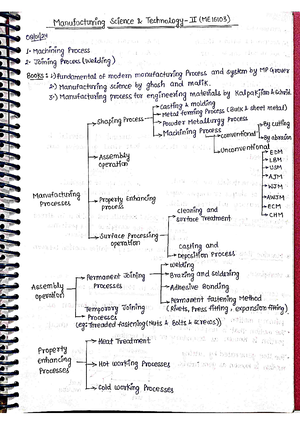 Manufacturing Science & Technology-II (ME16103)
1- Machining Process
2- Joining Process (Welding)
Books: 1) fundamental of modern manufacturing Process and system by MP Groover
2-) Manufacturing science by ghosh and malik.
3-) Manufacturing process for engineering materials by Kalpakjian &
Manufacturing Processes
Shaping Process
Casting & molding
Metal forming Process (Bulk & sheet metal)
Powder Metallurgy Process
Machining Process
Conventional
By cutting
By abrasion
Unconventional
EDM
LBM
USM
AJM
WJM
AWJM
ECM
CHM
Assembly operation
Property Enhancing process
Surface Processing operation
cleaning and surface Treatment
Coating and Deposition Process
Assembly operation
Permanent Joining Processes
Welding
Brazing and Soldering
Adhesive Bonding
Permanent fastening Method
(Rivets, Press fitting, expansion fitting)
Temporary Joining Processes
(eg: Threaded fastening (Nuts & Bolts & screws))
Property enhancing Processes
Heat Treatment
Hot working Processes
Cold working Processes